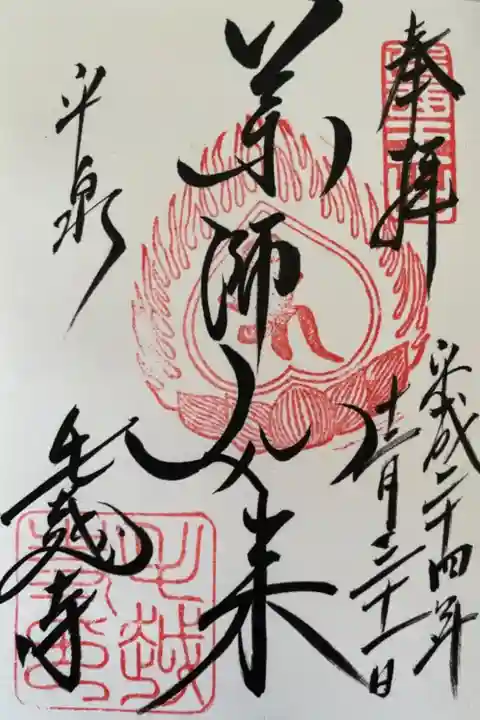 奉拝
平成二十四年
十二月三十一日
薬師如来
平泉
毛越寺